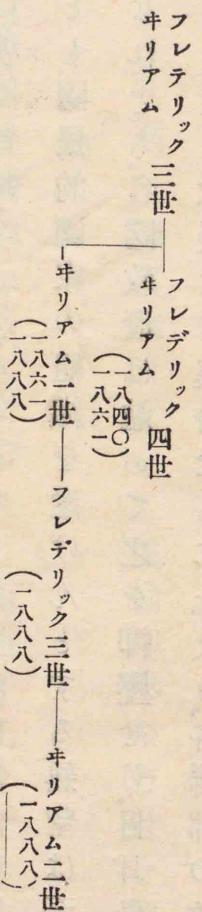 フレテリック
ヰリアム 三世
フレデリック
ヰリアム 四世
(一八四〇
一八六一)
ヰリアム一世
(一八六一
一八八八)
フレデリック三世
(一八八八)
ヰリアム二世
(一八八八